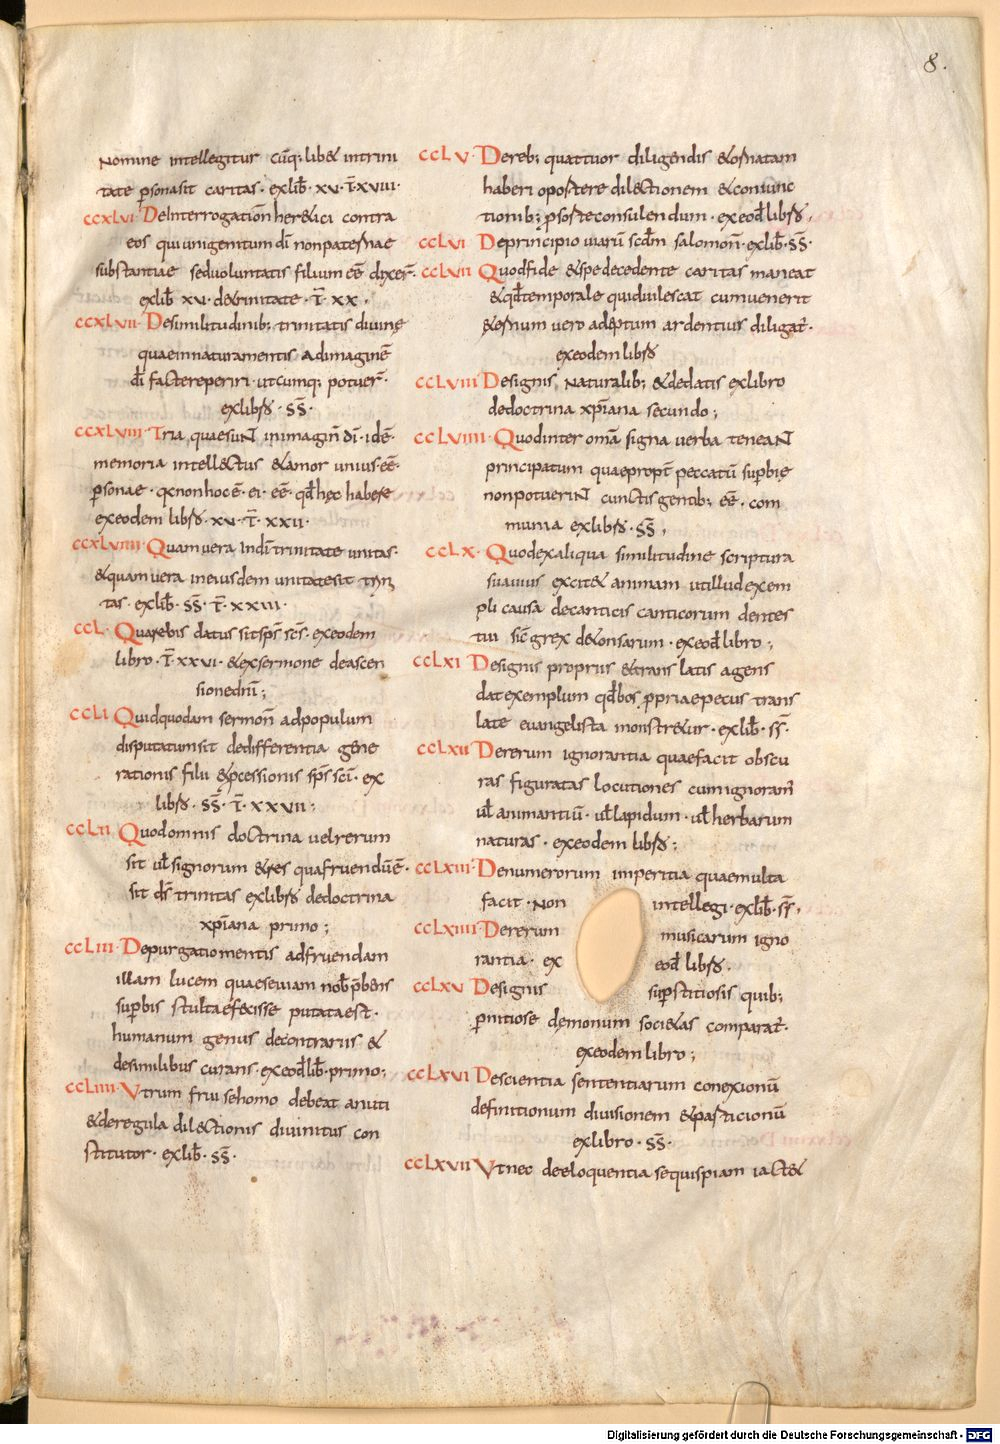 8.
Nomine intellegitur cūq; lib& intrini
tate p̱sonasit caritas · exlib̄ · xv · T̄ xviii ·
ccxlvi · Deinterrogatioñ her&ici contra
eos qui unigenitum dī nonpaternae
substantiae seduoluntatis filium eē dixer̄ ·
exlib̄ xv · de&rinitate · T̄ xx ·
ccxlvii · Desimilitudinib; trinitatis diuinę
quaeinnaturamentis adimaginē
dī factereperiri · utcumq; potuer̄ ·
exlibsđ · s̄s̄ ·
ccxlviii · Tria quaesuNt inimagiñ dī · idē ·
memoria intellectus & amor unius · eē ·
p̱sonae · qxnonhoc ē · ei · eē · qđ hęc habere
exeodem libsđ · xv · T̄ · xxii ·
ccxlviiii · Quamuera Indītrinitate unitas ·
& quam uera ineiusdem unitatesit trini
tas · exlib̄ · s̄s̄ · T̄ · xxiii ·
ccl · Quarebis datus sitsp̄s sc̄s · exeodem
libro · T̄ xxvi · & exsermone deascen
sionedn̄i ;
ccli Quidquodam sermoñ adpopulum
disputatumsit dedifferentia gene
rationis filii & p̱cessionis sp̄s sc̄i · ex
libsđ · s̄s̄ · T̄ · xxvii ;
cclii Quodomnis doctrina uelrerum
sit uł signorum & res quafruendūē ·
sit d̄s trinitas exlibsđ dedoctrina
xp̄iana primo ;
ccliii · Depurgatio mentis adfruendam
illam lucem quaeseiuam nob̄ p̄bens
sup̱bis stultaefecisse putataest ·
humanum genus decontrariis &
desimilibus curans · exeođ lib̄ · primo ;
ccliiii · Vtrum frui sehomo debeat an uti
& deregula dilectionis diuinitus con
stitutor · exlib̄ · s̄s̄ ·
cclv · Dereb; quattuor diligendis & ornatam
haberi oportere dilectionem & coniunc
tionib; p̱sorte consulendum · exeođ libsđ ·
cclvi Deprincipio uiarū sc̄dm salomoñ · exlib̄ · s̄s̄ ·
cclvii Quodfide & spedecedente caritas maneat
& qđtemporale quid uilescat cumuenerit
& ernum uero adeptum ardentius diligat̄ ·
exeodem libsđ
cclviii Designis Naturalib; & dedatis exlibro
dedoctrina xp̄iana secundo ;
cclviiii · Quodinter omā signa uerba teneaNt
principatum quaepropt̄ peccatū sup̱bię
nonpotueriNt cunctis gentib; eē · com
munia exlibsđ · s̄s̄ ·
cclx · Quodexaliqua similitudine scriptura
suauius excit& animam utilludexem
pli causa decanticis canticorum dentes
tui sic̄ grex de&onsarum · exeođ libro ;
cclxi Designis propriis & translatis agens
datexemplum qđbos p̱priaepecus trans
late euangelista monstr&ur · exlib̄ · s̄s̄ ·
cclxii Dererum ignorantia quaefacit obscu
ras figuratas locutiones cumignoram̄
uł animantiū · uł lapidum · uł herbarum
naturas · exeodem libsđ ;
cclxiii · Denumerorum imperitia quaemulta
facit · Non intellegi · exlib̄ · s̄s̄ ·
cclxiiii · Dererum musicarum igno
rantia · ex eođ libsđ ·
cclxv Designis sup̱stitiosis quib;
p̱nitiose dęmonum soci&as comparat̄ ·
exeodem libro ;
cclxvi Descientia sententiarum conexionū
definitionum diuisionem & partitionū
exlibro · s̄s̄ ·
cclxvii Vtnec deeloquentia sequispiam iact&
Digitalisierung gefördert durch die Deutsche Forschungsgemeinschaft - DFG